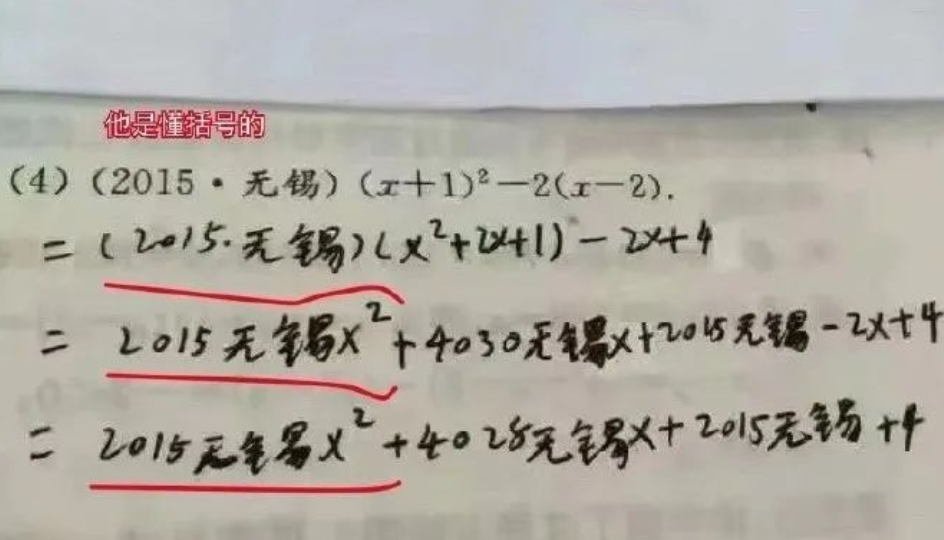 他是懂括号的
(4)(2015·无锡)(x+1)²-2(x-2).
=(2015·无锡)(x²+2x+1)-2x+4
=2015无锡x²+4030无锡x+2015无锡-2x+4
=2015无锡x²+4028无锡x+2015无锡+4